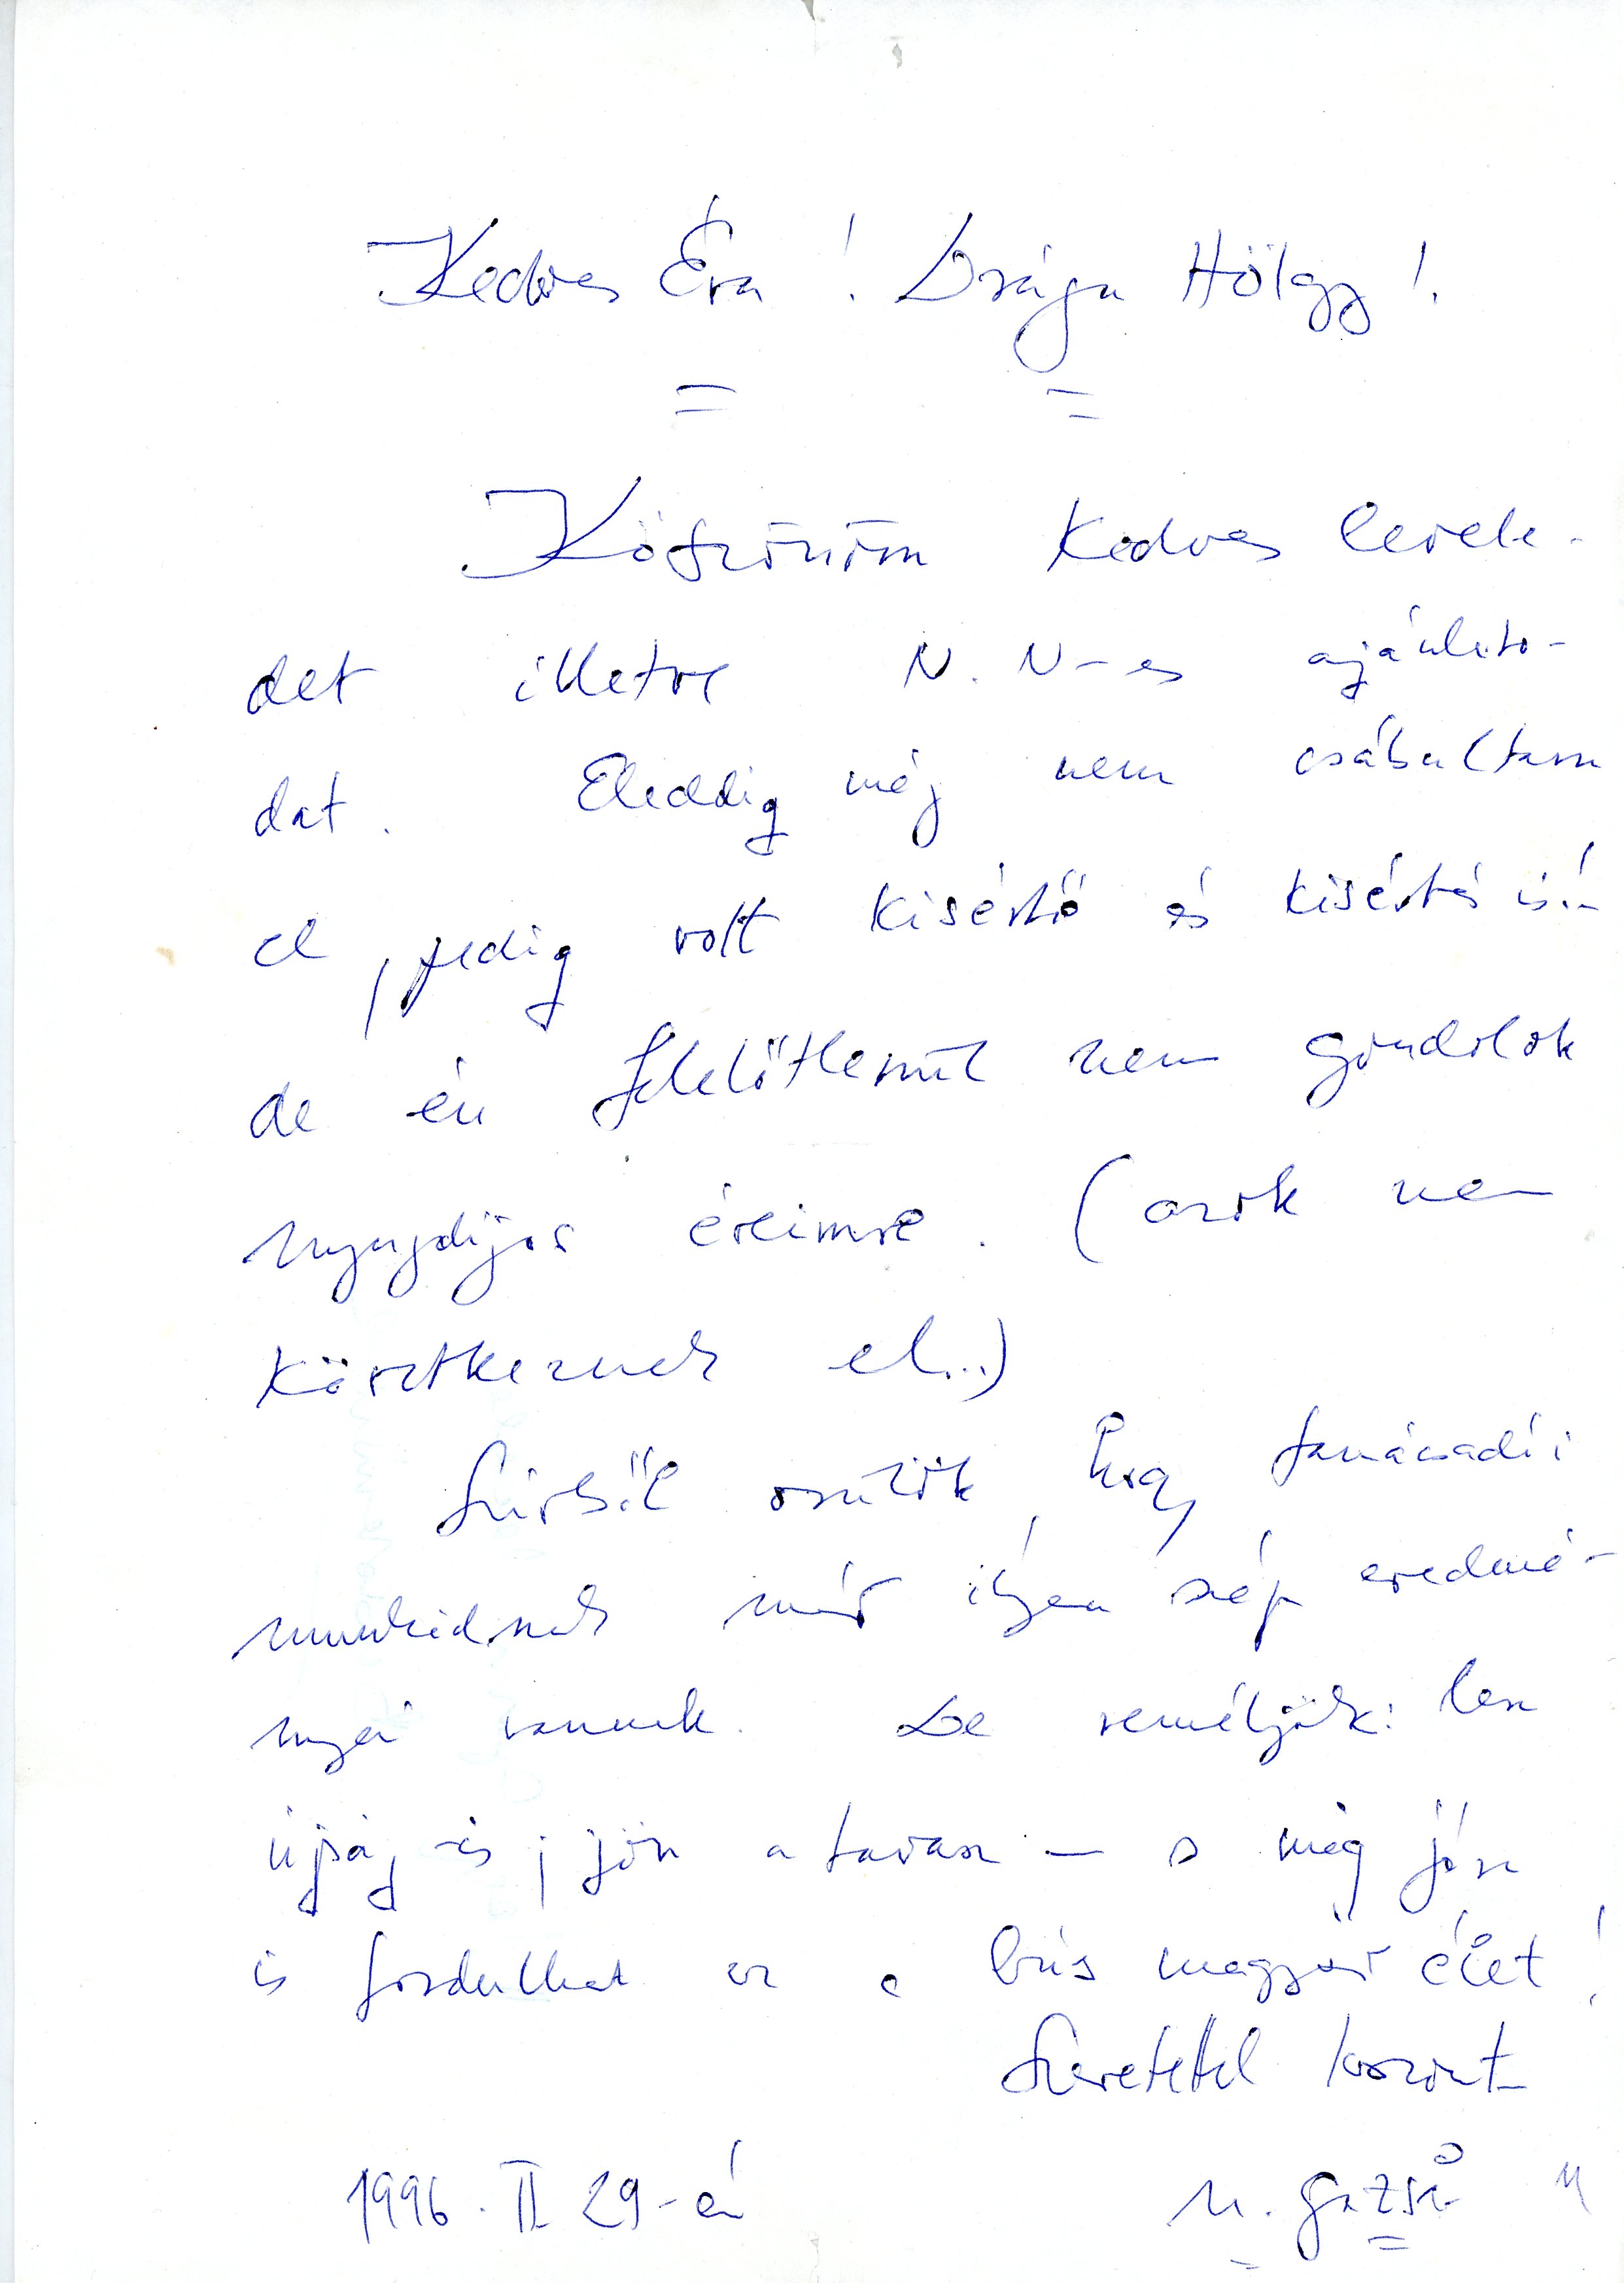 Kedves Éva! Drága Hölgy!
Köszönöm kedves levele-
det illetve N. N-es ajánlato-
dat. Eleddig még nem csábultam
el, pedig volt kisértő és kisértés is!
de én felelőtlenül nem gondolok
nyugdíjas éveimre. (azok nem
következnek el...)
Szívből örülök, hogy tanácsadói
munkádnak már ilyen szép eredmé-
nyei vannak. De reméljük: lesz
újság is, jön a tavasz – s még jóra
is fordulhat ez a bús magyar élet!
Szeretettel köszönt
1996. II 29-én M. Gazsó